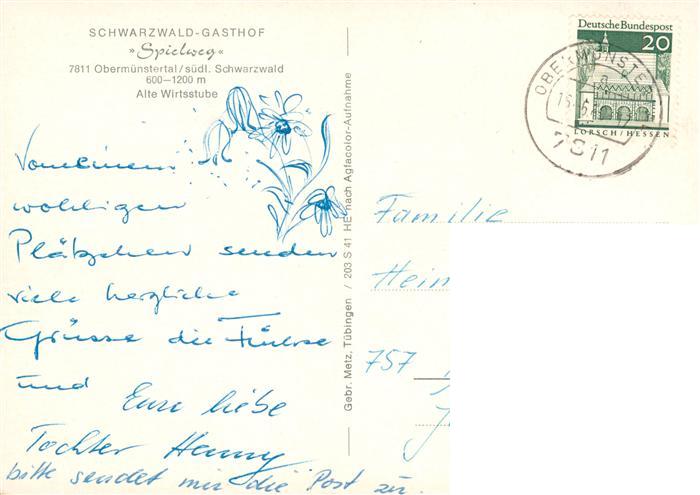 SCHWARZWALD-GASTHOF
»Spielweg«
7811 Obermünstertal/südl. Schwarzwald
600—1200 m
Alte Wirtsstube
Von einem
wohligen
Plätzchen senden
viele herzliche
Grüsse die
und
Eure liebe
Tochter Henny
bitte sendet mir die Post zu.
Gebr. Metz, Tübingen / 203 S 41 HE nach Agfacolor-Aufnahme
Deutsche Bundespost
20
LORSCH/HESSEN
7811
Familie
Hein
757